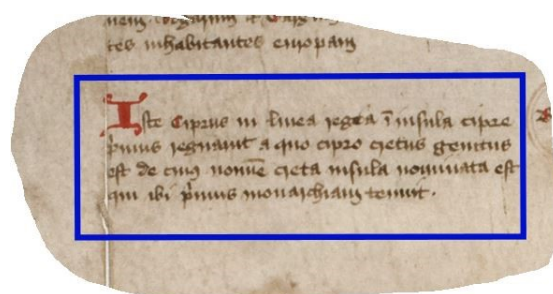 tes inhabitantes europam
Iste Ciprus in linea regea ī insula cipre
p̄mus regnauit a quo cipro cretus genitus
est de cuiꝰ nomīe creta insula nominata est
qui ibi p̄mus monarchiam tenuit .